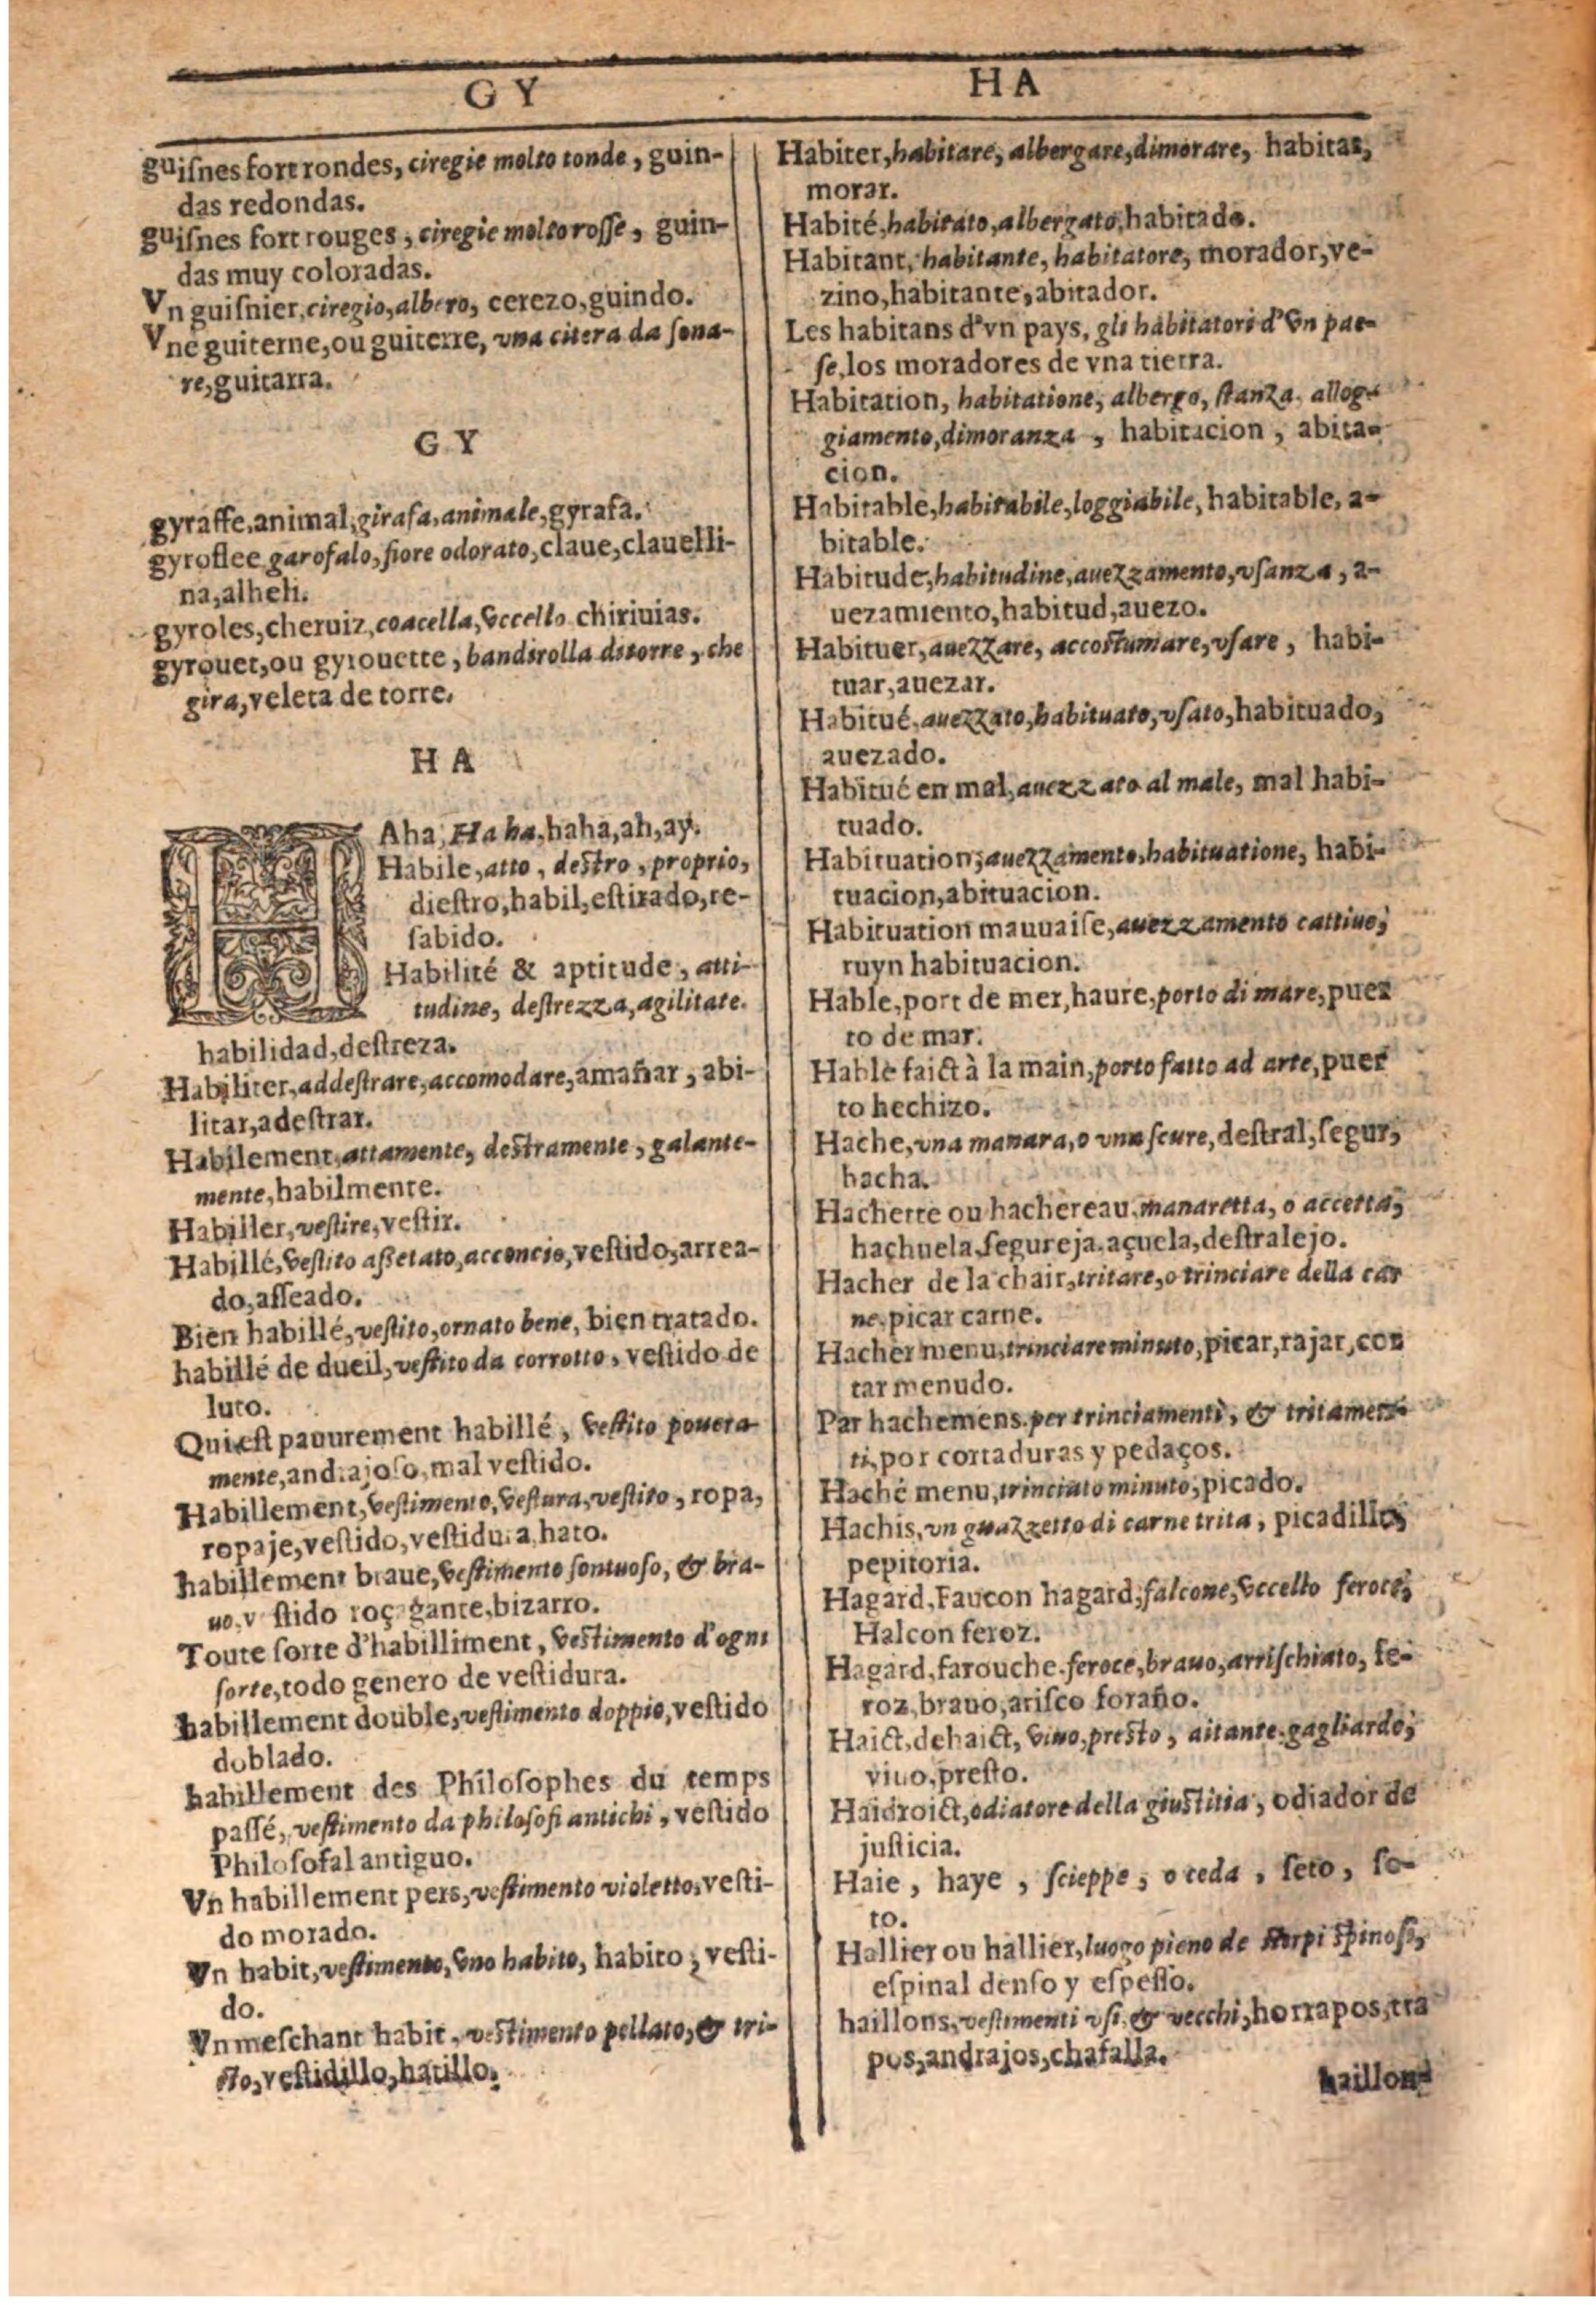 GY
HA
guiſnes fort rondes, ciregie molto tonde, guin-
das redondas.
guiſnes fort rouges, ciregie molto roſſe, guin-
das muy coloradas.
Vn guiſnier, ciregio, albero, cerezo, guindo.
Vne guiterne, ou guiterre, vna citera da ſona-
re, guitarra.
GY
gyraffe, animal, girafa, animale, gyrafa.
gyroflee garofalo, fiore odorato, claue, clauelli-
na, alheli.
gyroles, cheruiz, coacella, vccello chiriuias.
gyrouet, ou gyrouette, bandirolla di torre, che
gira, veleta de torre.
HA
HAha, Ha ha, haha, ah, ay.
Habile, atto, deſtro, proprio,
dieſtro, habil, eſtirado, re-
ſabido.
Habilité & aptitude, atti-
tudine, deſtrezza, agilitate.
habilidad, deſtreza.
Habiliter, addeſtrare, accomodare, amañar, abi-
litar, adeſtrar.
Habilement, attamente, deſtramente, galante-
mente, habilmente.
Habiller, veſtire, veſtir.
Habillé, veſtito aſſetato, acconcio, veſtido, arrea-
do, aſſeado.
Bien habillé, veſtito, ornato bene, bien tratado.
habillé de dueil, veſtito da corrotto, veſtido de
luto.
Qui eſt pauurement habillé, veſtito pouera-
mente, andrajoſo, mal veſtido.
Habillement, veſtimento, veſtura, veſtito, ropa,
ropaje, veſtido, veſtidura, hato.
habillement braue, veſtimento ſontuoſo, & bra-
uo, v ſtido roç gante, bizarro.
Toute ſorte d'habilliment, veſtimento d'ogni
ſorte, todo genero de veſtidura.
habillement double, veſtimento doppio, veſtido
doblado.
habillement des Philoſophes du temps
paſſé, veſtimento da philoſofi antichi, veſtido
Philoſofal antiguo.
Vn habillement pers, veſtimento violetto, veſti-
do morado.
Vn habit, veſtimento, vno habito, habito, veſti-
do.
Vn meſchant habit, veſtimento pellato, & tri-
ſto, veſtidillo, hatillo.
Habiter, habitare, albergare, dimorare, habitar,
morar.
Habité, habitato, albergato, habitado.
Habitant, habitante, habitatore, morador, ve-
zino, habitante, abitador.
Les habitans d'vn pays, gli habitatori d'vn pae-
ſe, los moradores de vna tierra.
Habitation, habitatione, albergo, ſtanza, allog-
giamento, dimoranza, habitacion, abita-
cion.
Habitable, habitabile, loggiabile, habitable, a-
bitable.
Habitude, habitudine, auezzamento, vſanza, a-
uezamiento, habitud, auezo.
Habituer, auezzare, accoſtumare, vſare, habi-
tuar, auezar.
Habitué, auezzato, habituato, vſato, habituado,
auezado.
Habitué en mal, auezzato al male, mal habi-
tuado.
Habituation, auezzamento, habituatione, habi-
tuacion, abituacion.
Habituation mauuaiſe, auezzamento cattiuo,
ruyn habituacion.
Hable, port de mer, haure, porto di mare, puer
to de mar.
Hable faict à la main, porto fatto ad arte, puer
to hechizo.
Hache, vna manara, o vna ſcure, deſtral, ſegur,
hacha.
Hachette ou hachereau, manaretta, o accetta,
hachuela, ſegureja, açuela, deſtralejo.
Hacher de la chair, tritare, o trinciare della car
ne, picar carne.
Hacher menu, trinciare minuto, picar, rajar, cor
tar menudo.
Par hachemens, per trinciamenti, & tritamen-
ti, por cortaduras y pedaços.
Haché menu, trinciato minuto, picado.
Hachis, vn guazzetto di carne trita, picadillo,
pepitoria.
Hagard, Faucon hagard, falcone, vccello feroce,
Halcon feroz.
Hagard, farouche, feroce, brauo, arriſchiato, fe-
roz, brauo, ariſco foraño.
Haict, dehaict, viuo, preſto, aitante, gagliardo,
viuo, preſto.
Haidroict, odiatore della giuſtitia, odiador de
juſticia.
Haie, haye, ſcieppe, o ceda, ſeto, ſo-
to.
Hallier ou hallier, luogo pieno de ſterpi ſpinoſi,
eſpinal denſo y eſpeſſo.
haillons, veſtimenti vſi, & vecchi, horrapos, tra
pos, andrajos, chafalla.
haillons